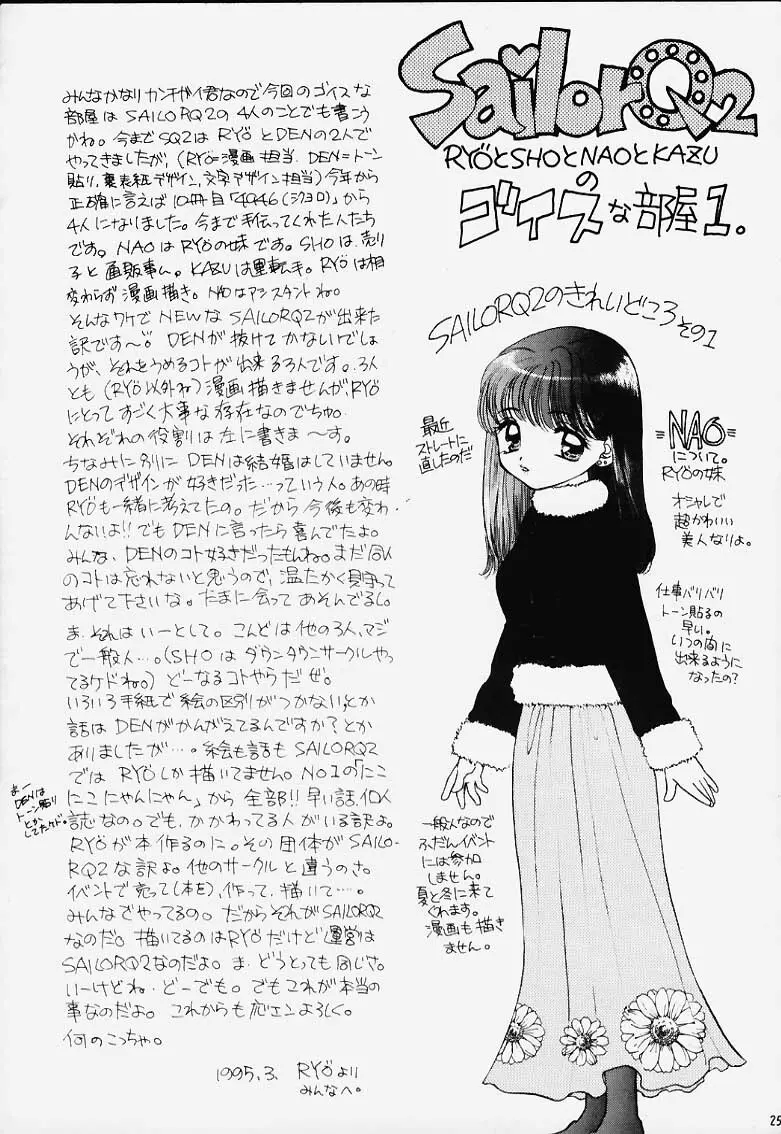 SailorQ2
RYÖとSHOとNAOとKAZU
の
ゴイスな部屋1.
みんなかなりカンチガイ君なので今回のゴイスな
部屋はSAILORQ2の4人のことでも書こう
かね。今までSQ2はRYÖとDENの2人で
やってきましたが、(RYÖ=漫画担当、DEN=トーン
貼り、裏表紙デザイン、文字デザイン担当)今年から
正確に言えば10冊目「4946(シクヨロ)」から
4人になりました。今まで手伝ってくれた人たち
です。NAOはRYÖの妹です。SHOは、売り
子と通販事ム。KAZUは運転手。RYÖは相
変わらず漫画描き。NAOはアシスタントね。
そんなワケでNEWなSAILORQ2が出来た
訳です〜。DENが抜けてかないけでしょ
うが、それをうめるコトが出来る3人です。3人
とも(RYÖ以外ね)漫画描きませんが、RYÖ
にとってすごく大事な存在なのでちゅ。
それぞれの役割は左に書きま〜す。
ちなみに別にDENは結婚はしていません。
DENのデザインが好きだった…っていう人。あの時
RYÖも一緒に考えてたの。だから今後も変わ
んないよ!!でもDENに言ったら喜んでたよ。
みんな、DENのコト好きだったもんね。まだ同人
のコトは忘れないと思うので、温たかく見守って
あげて下さいな。たまに会ってあそんでるし。
ま、それはいーとして。こんどは他の3人、マジ
で一般人…。(SHOはダウンタウンサークルやっ
てるケドね。)どーなるコトやらだぜ。
いろいろ手紙で絵の区別がつかない、とか
話はDENがかんがえてるんですか?とか
ありましたが…。絵も話もSAILORQ2
ではRYÖしか描いてません。NO1の「にこ
にこにゃんにゃん」から全部!!早い話、個人
誌なの。でも、かかわってる人がいる訳よ。
RYÖが本作るのに。その団体がSAILO-
RQ2な訳よ。他のサークルと違うのさ。
イベントで売って(本を)、作って、描いて…。
みんなでやってるの。だからそれがSAILORQ2
なのだ。描いてるのはRYÖだけど運営は
SAILORQ2なのだよ。ま、どうとっても同じさ。
いーけどね・どーでも。でもこれが本当の
事なのだよ。これからも応エンよろしく。
何のこっちゃ。
1995.3. RYÖより
みんなへ。
まー
DENは
トーン貼り
とか
してたケド。
SAILORQ2のきれいどころ
その1
最近
ストレートに
直したのだ
=NAO=
について。
RYÖの妹
オシャレで
超かわいい
美人なりよ。
仕事バリバリ
トーン貼るの
早い。
いつの間に
出来るように
なったの?
一般人なので
ふだんイベント
には参加
しません。
夏と冬に来て
くれます。
漫画も描き
ません。
25